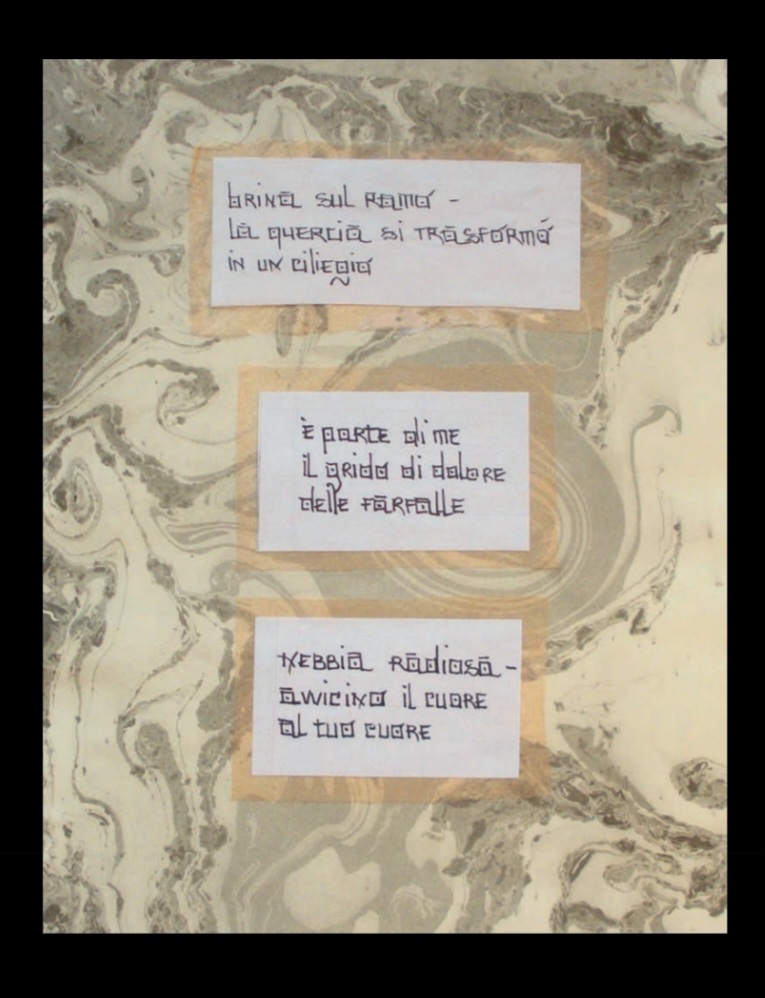 brina sul ramo -
la quercia si trasforma
in un ciliegio
è parte di me
il grido di dolore
delle farfalle
nebbia radiosa -
avvicino il cuore
al tuo cuore